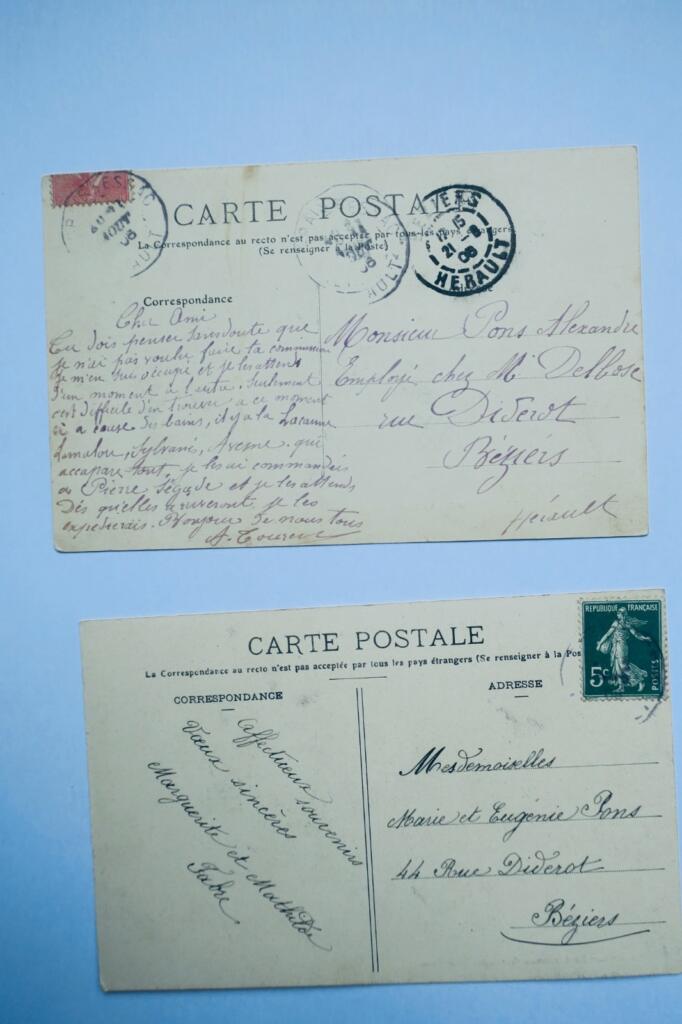 CARTE POSTALE
La Correspondance au recto n'est pas acceptée par tous les pays étrangers
(Se renseigner à la Poste)
HÉRAULT
12 15
21 8
08
Correspondance
Cher Ami
Tu dois penser sans doute que
je n'ai pas voulu faire ta commission
Je m'en suis occupé et je les attends
d'un moment à l'autre, seulement
c'est difficile d'en trouver a ce moment
ci a cause des bains, il y a la Lacaune
Lamalou, Sylvanès, Avesne qui
accapare tout, je les ai commandés
a Pierre Ségade et je les attends
Dès qu'elles arriveront je les
expedierais. Bonjour de nous tous
Monsieur Pons Alexandre
Employé chez Mr Delbose
rue Diderot
Béziers
Hérault
CARTE POSTALE
La Correspondance au recto n'est pas acceptée par tous les pays étrangers (Se renseigner à la Pos
CORRESPONDANCE
Affectueux souvenirs
Vœux sincères
Marguerite et Mathilde
Fabre
ADRESSE
REPUBLIQUE FRANÇAISE
5c
POSTES
Mesdemoiselles
Marie et Eugénie Pons
44 Rue Diderot
Béziers